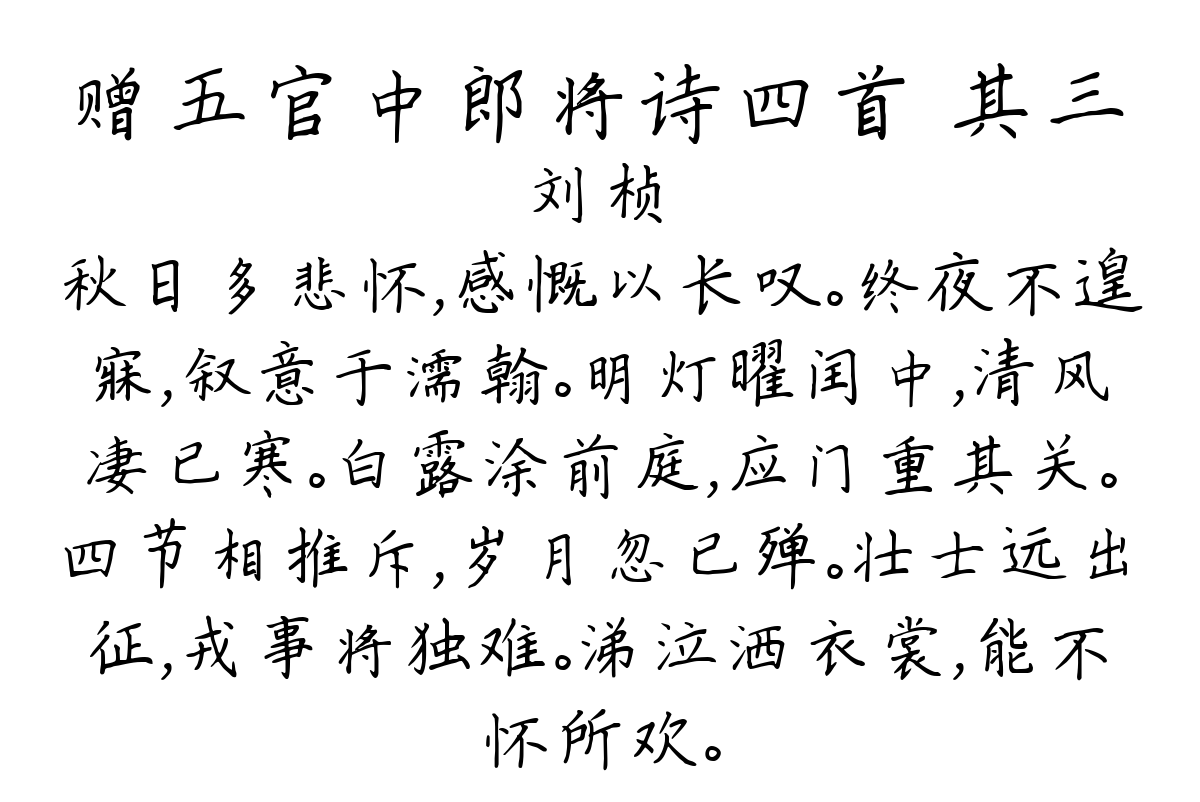 赠五官中郎将诗四首 其三
刘桢
秋日多悲怀,感慨以长叹。终夜不遑
寐,叙意于濡翰。明灯曜闺中,清风
凄已寒。白露涂前庭,应门重其关。
四节相推斥,岁月忽已殚。壮士远出
征,戎事将独难。涕泣洒衣裳,能不
怀所欢。